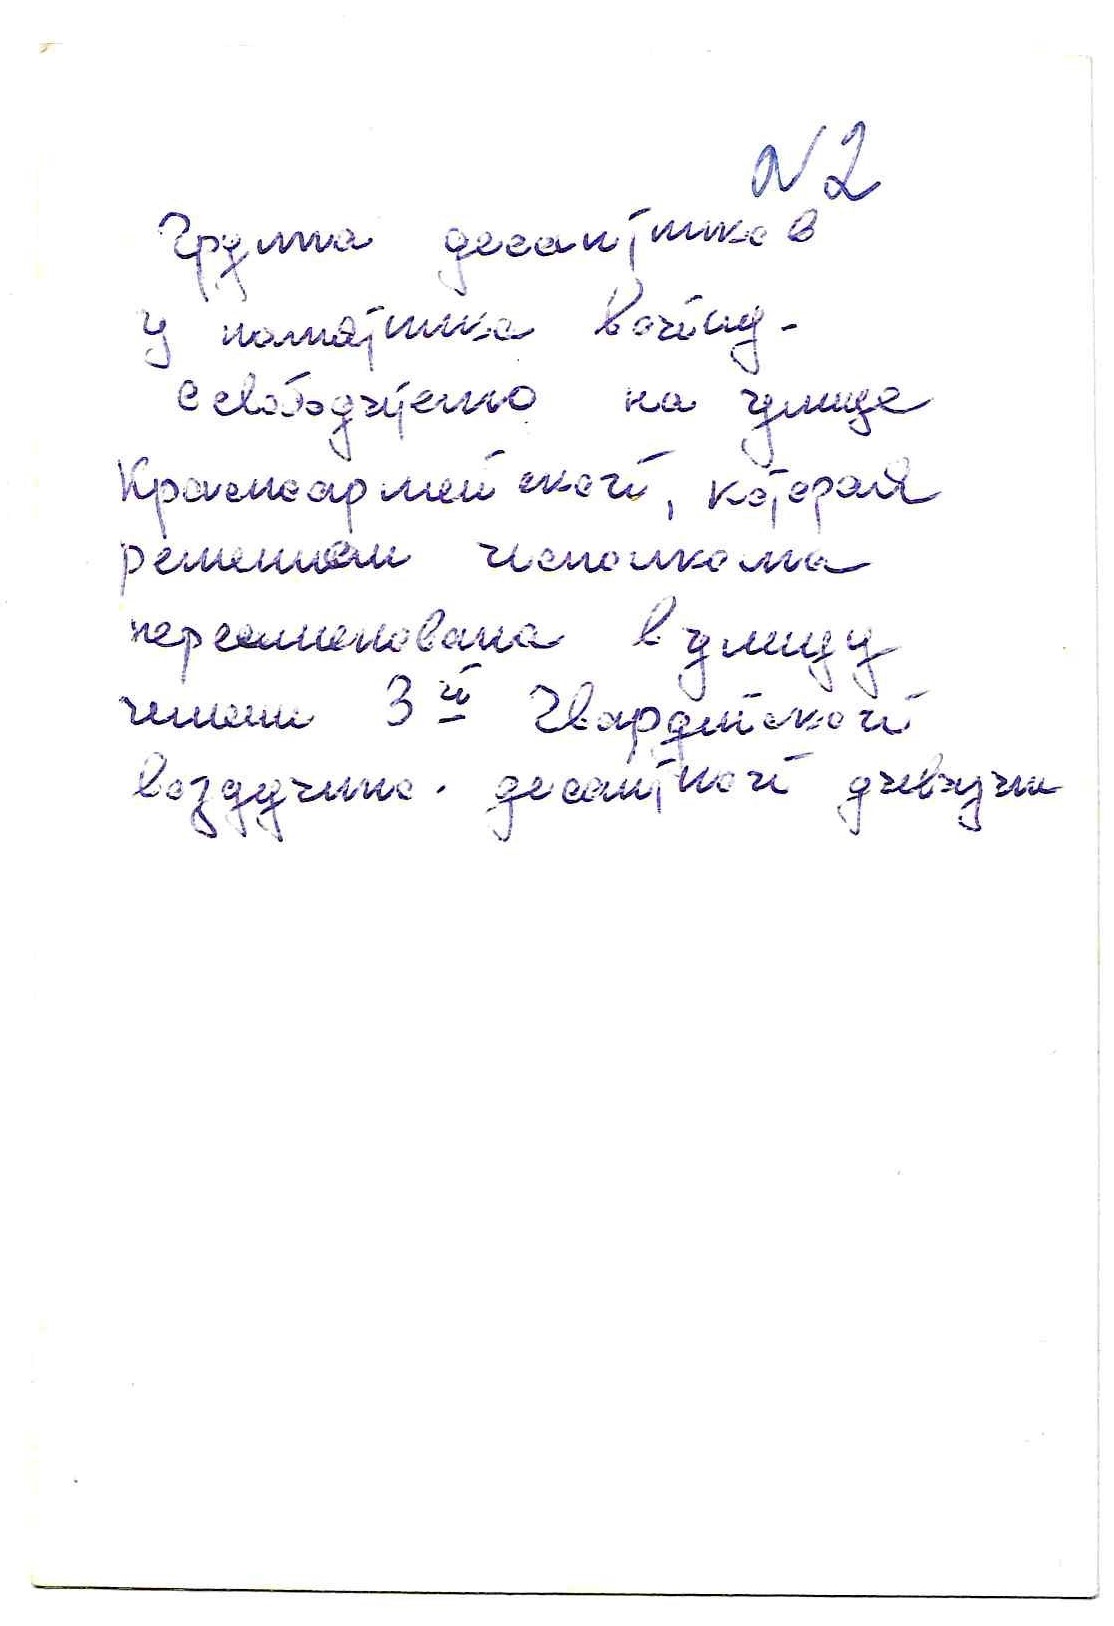 N 2
Группа десантников
у памятника воину-
освободителю на улице
Красноармейской, которая
решением исполкома
переименована в улицу
имени 3й Гвардейской
воздушно-десантной дивизии